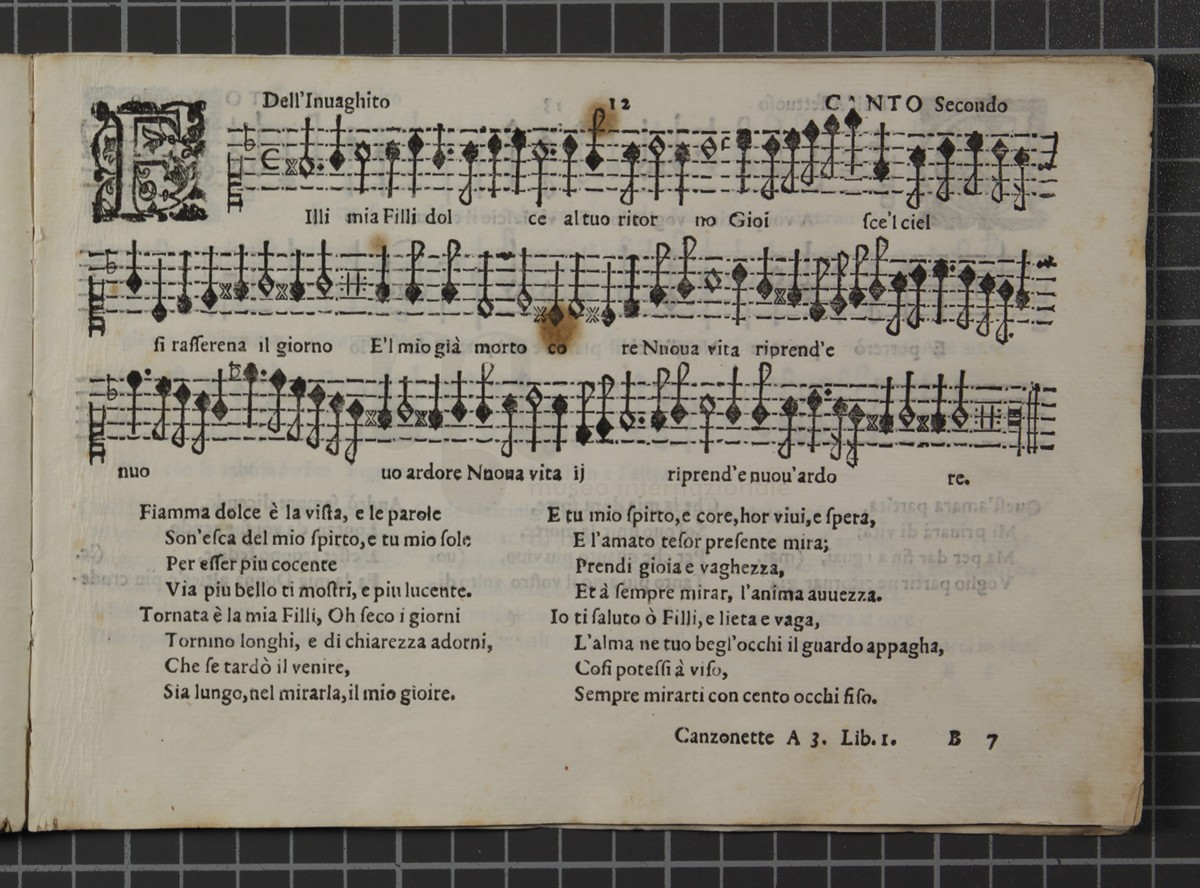 Dell'Inuaghito 12 CANTO Secondo
F
Illi mia Filli dol ce al tuo ritor no Gioi ſce'l ciel
ſi raſſerena il giorno E'l mio già morto co re Nnoua vita riprend'e
nuo uo ardore Nnoua vita ij riprend'e nuou'ardo re.
Fiamma dolce è la viſta, e le parole
Son'eſca del mio ſpirto, e tu mio ſole
Per eſſer piu cocente
Via piu bello ti moſtri, e piu lucente.
Tornata è la mia Filli, Oh ſeco i giorni
Tornino longhi, e di chiarezza adorni,
Che ſe tardò il venire,
Sia lungo, nel mirarla, il mio gioire.
E tu mio ſpirto, e core, hor viui, e ſpera,
E l'amato teſor preſente mira;
Prendi gioia e vaghezza,
Et à ſempre mirar, l'anima auuezza.
Io ti ſaluto ò Filli, e lieta e vaga,
L'alma ne tuo begl'occhi il guardo appagha,
Coſi poteſſi à viſo,
Sempre mirarti con cento occhi fiſo.
Canzonette A 3. Lib. 1. B 7